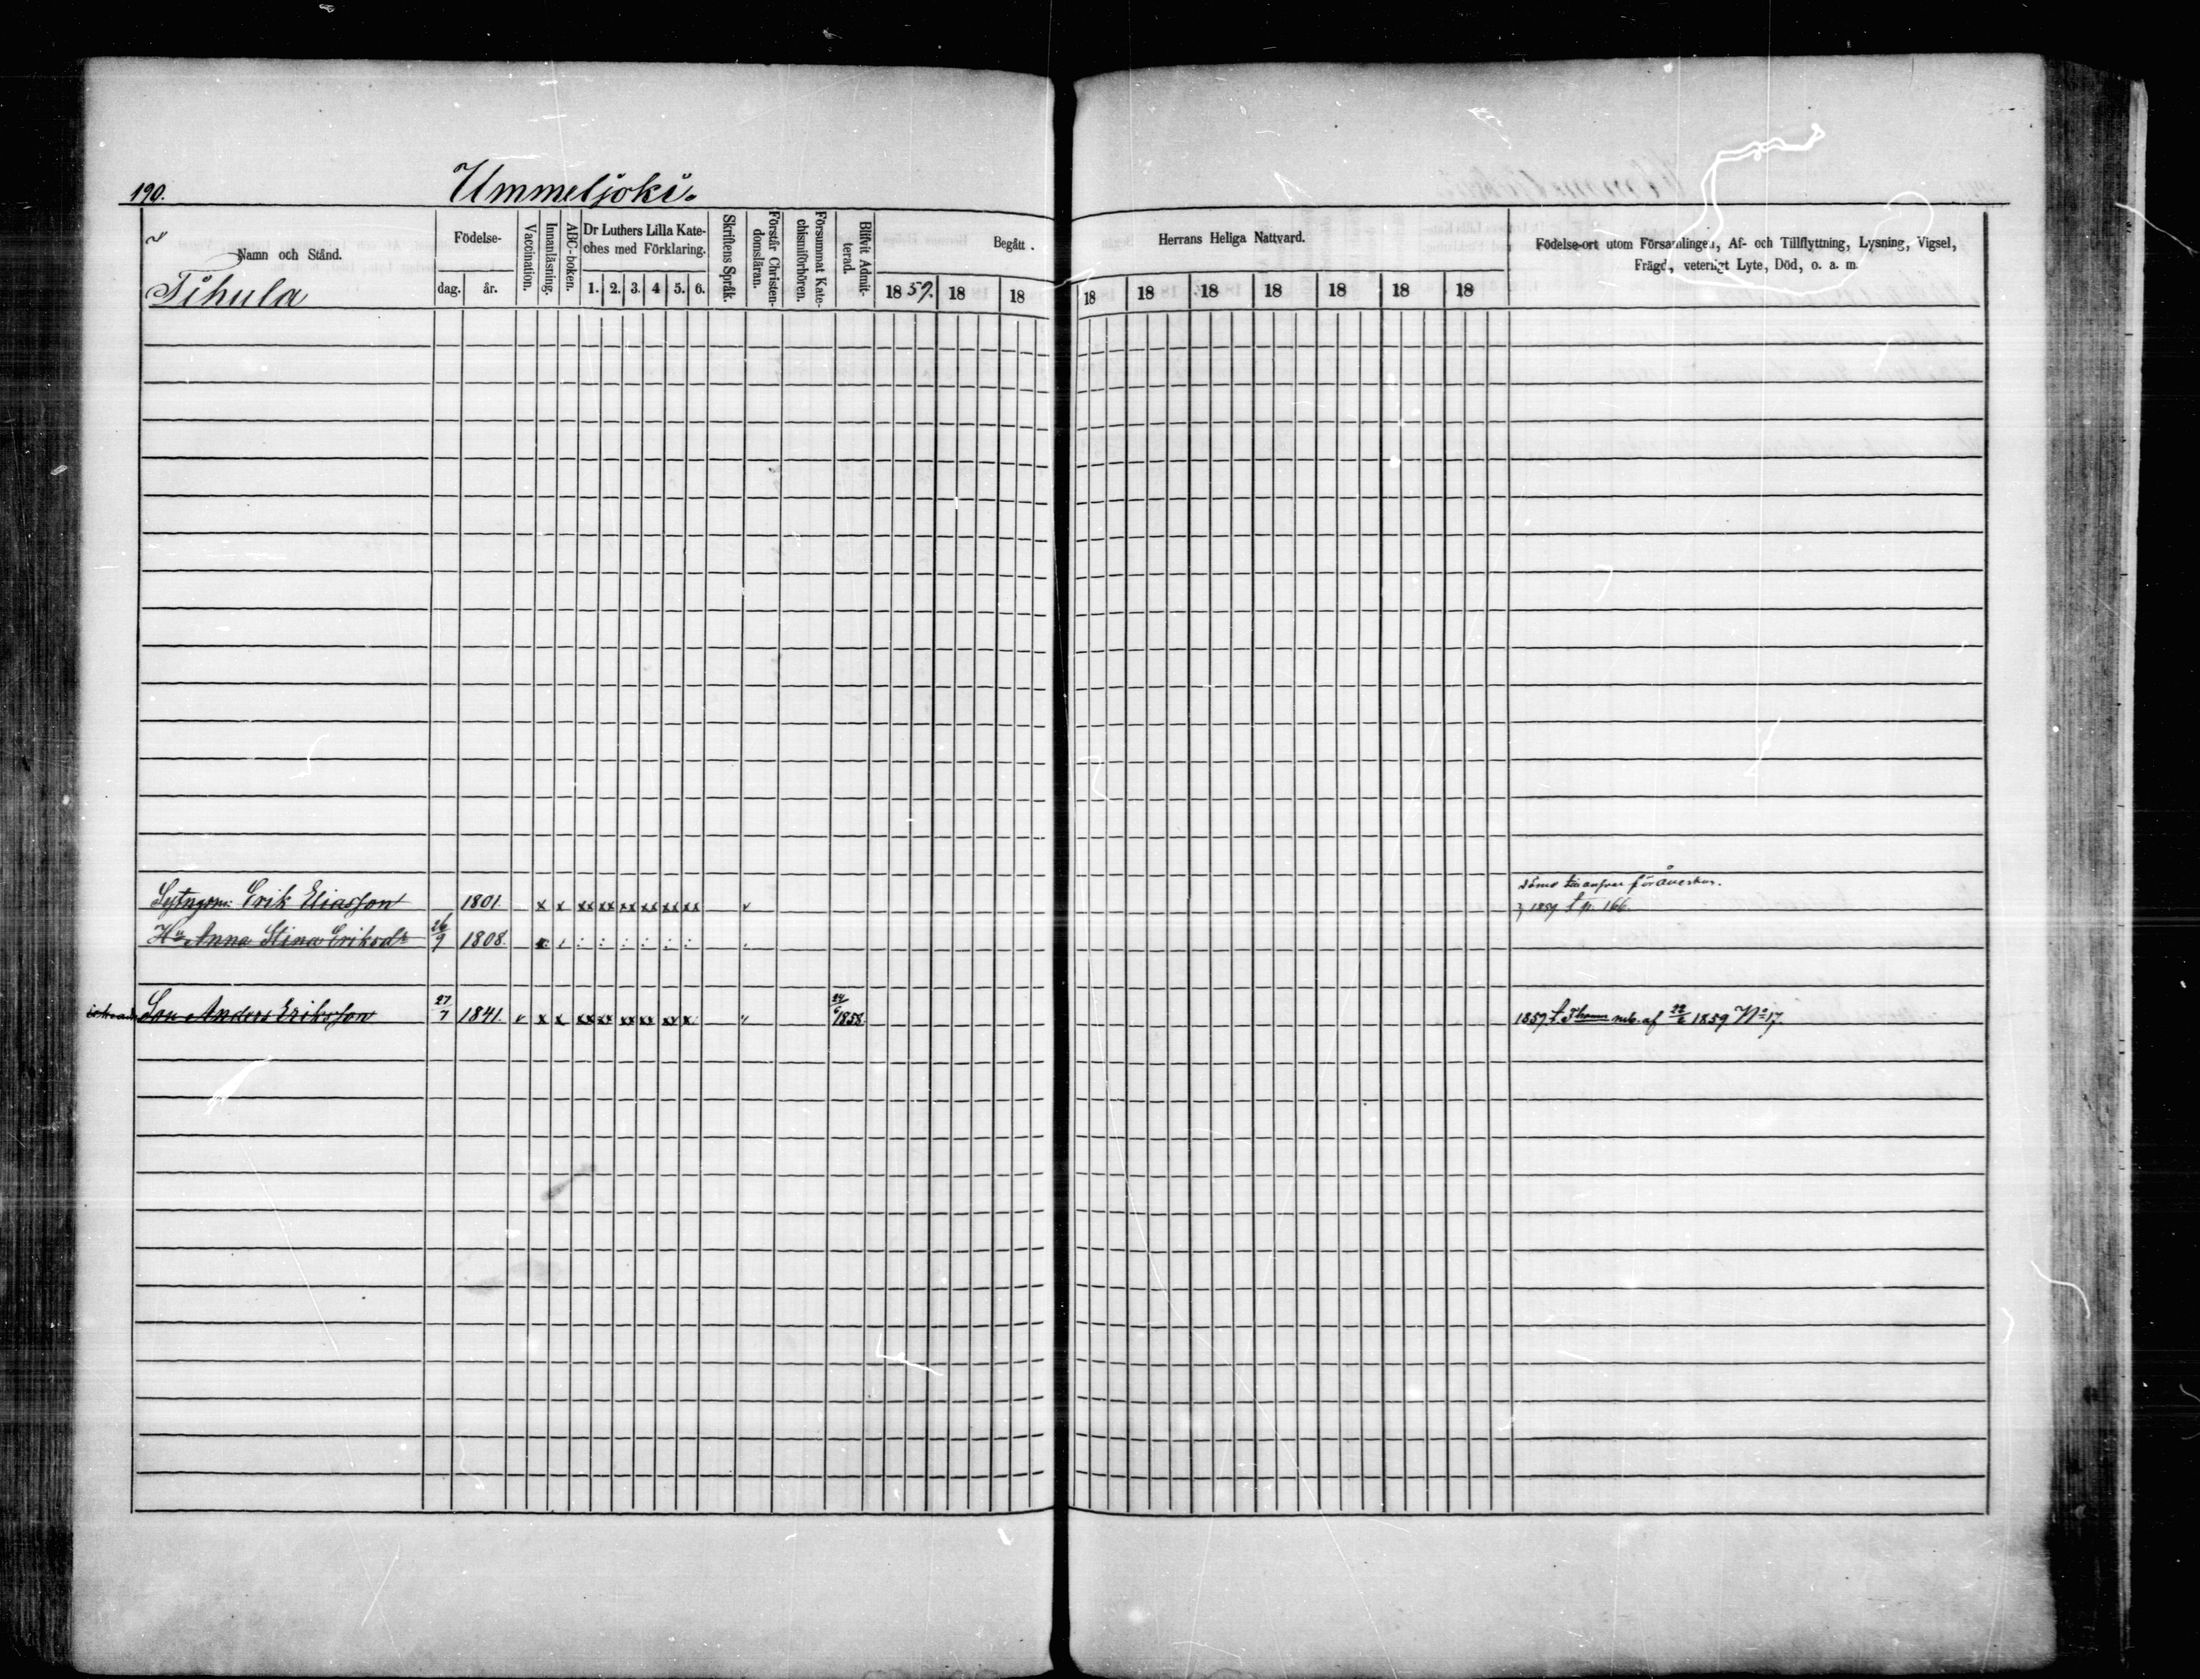 190.
Ummeljoki.
Namn och Stånd.
Tihula
Födelse-
dag.
år.
Vaccination.
Innanläsning.
ABC-boken.
Dr Luthers Lilla Kate-
ches med Förklaring.
1. 2. 3. 4 5. 6.
Skriftens Språk.
Förstår Christen-
domsläran.
Försummat Kate-
chismiförhören.
Blifvit Admit-
terad.
Begått
Herrans Heliga Nattvard.
1859. 18 18 18 18 18 18 18 18 18
Födelse-ort utom Församlingen, Af- och Tillflyttning, Lysning, Vigsel,
Frägd, veterligt Lyte, Död, o. a. m.
Erik Eliasson 1801. x x xx xx xx xx xx xx v
1859 t p. 166.
Hu Anna Stina Eriksdr 26/9 1808.
Son Anders Eriksson 27/7 1841. v x x xx xx xx xx xx x. v 24/6 1858.
1859 t. af 22/6 1859 No 17.